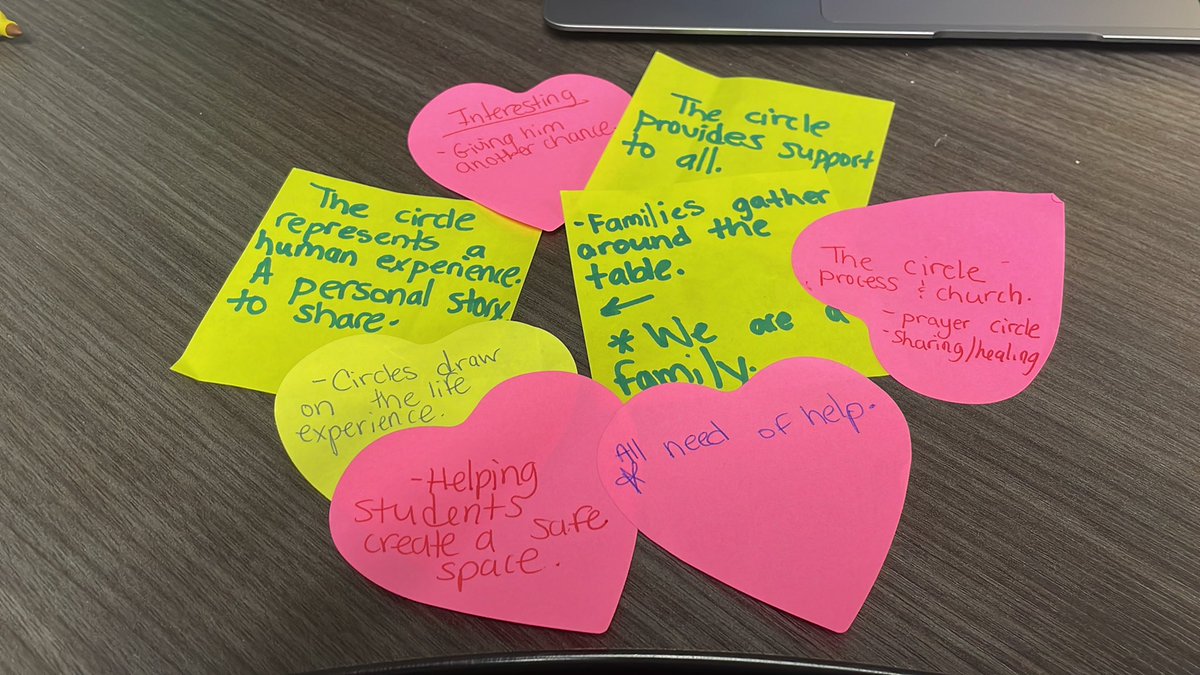 Interesting
- Giving him
another chance.
The circle
provides support
to all.
The circle
represents a
human experience.
A personal story
to share.
- Families gather
around the
table.
←
* We are a
family.
The circle
process & church.
- prayer circle
- sharing/healing
- Circles draw
on the life
experience.
- Helping
students
create a safe
space.
All need of help.
*